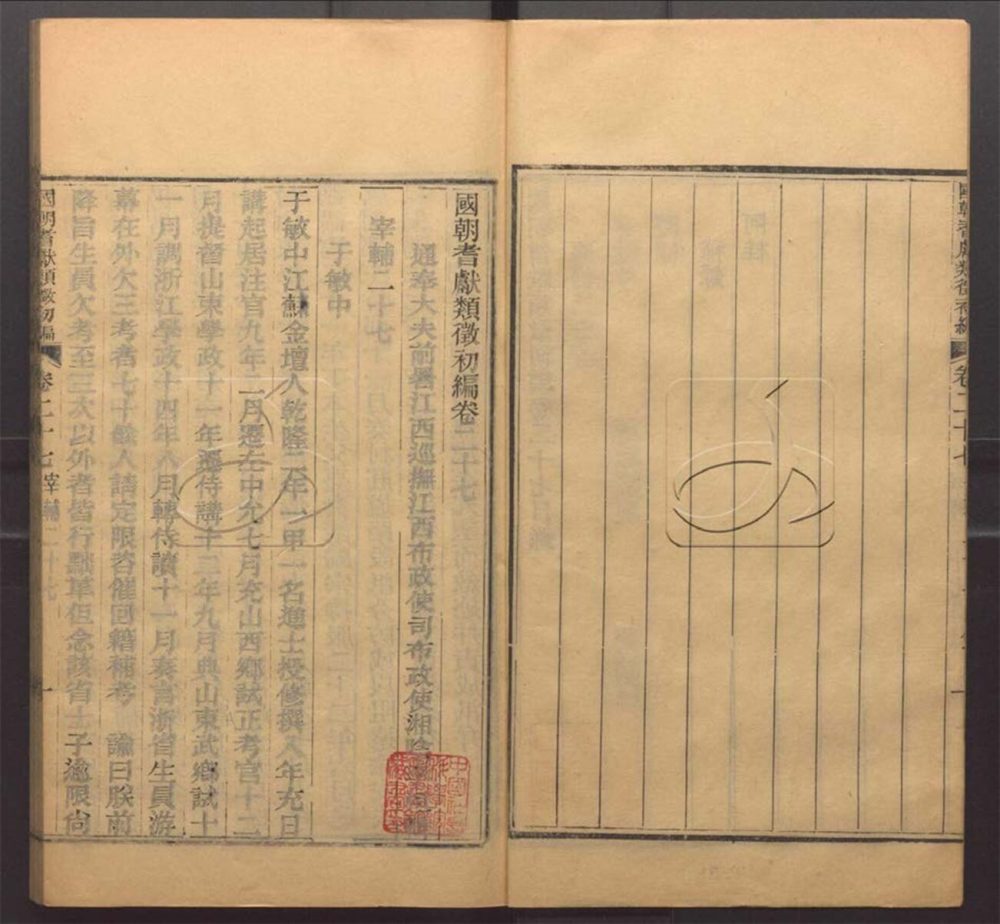 國朝耆獻類徵初編 卷二十七
國朝耆獻類徵初編卷二十七
通奉大夫前署江西巡撫江西布政使司布政使湘陰
宰輔二十七
于敏中
于敏中江蘇金壇人乾隆二年一甲一名進士授修撰八年充日
講起居注官九年二月遷左中允七月充山西鄉試正考官十二
月提督山東學政十一年遷侍講十二年九月典山東武鄉試十
一月調浙江學政十四年八月轉侍讀十一月奏言浙省生員游
幕在外欠三考者七十餘人請定限咨催回籍補考 諭曰朕前
降旨生員欠考至三次以外者皆行黜革但念該省士子逾限尙
國朝耆獻類徵初編 卷二十七 宰輔二十七 一